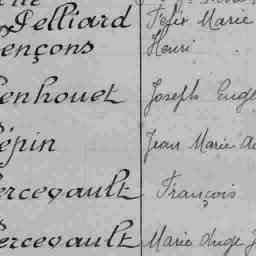 Pelliard Felix Marie
ençons Henri
enhouet Joseph Eugè
épin Jean Marie
ercevault François
ercevault Marie Ange J